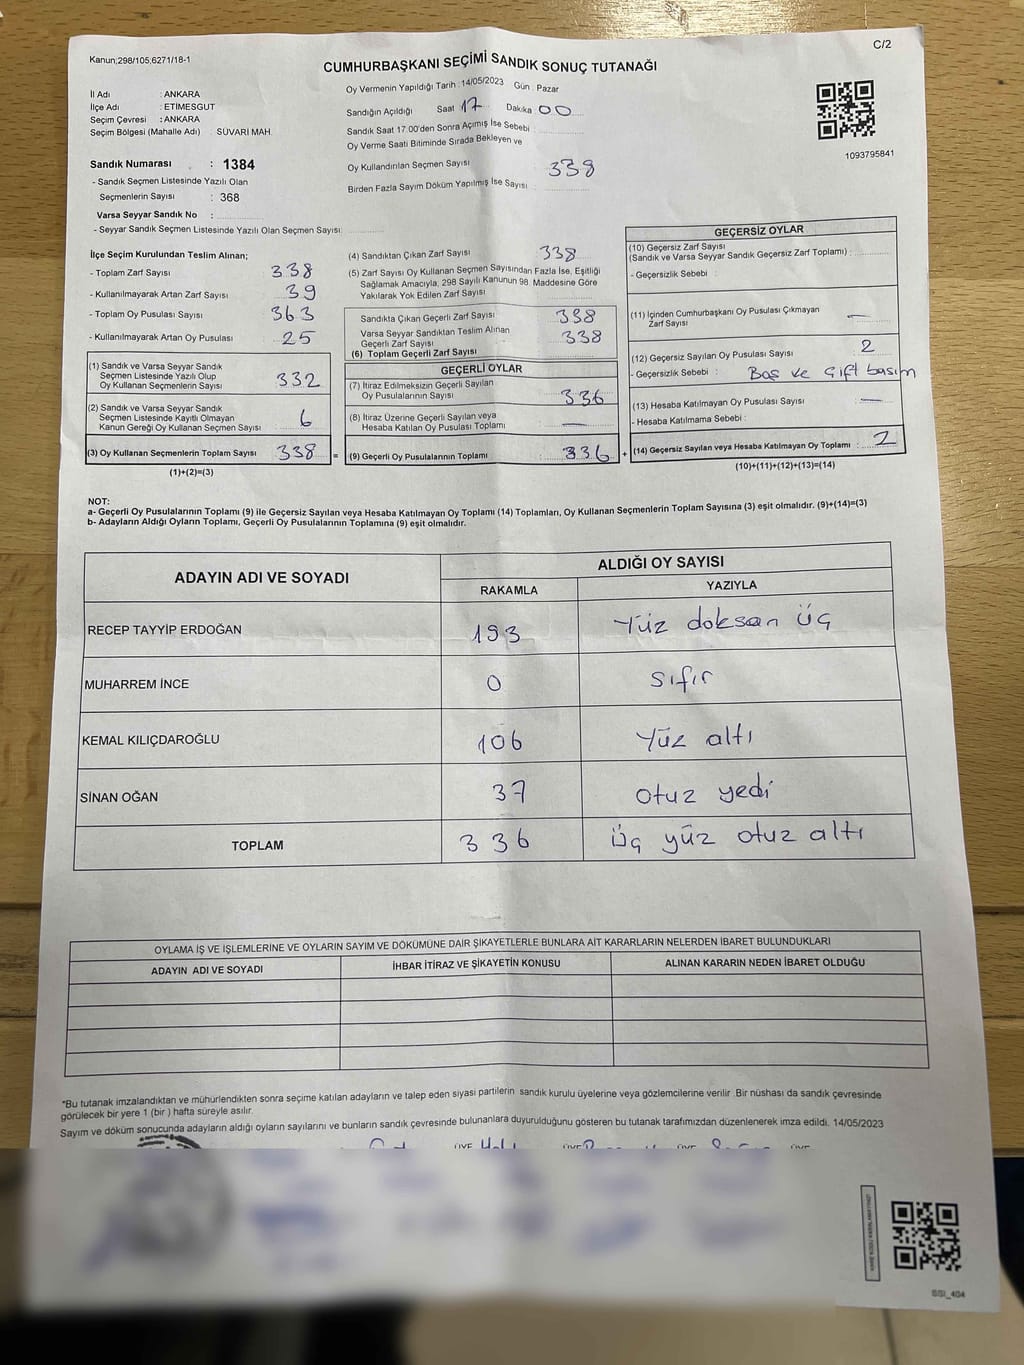 C/2
Kanun;298/105;6271/18-1
CUMHURBAŞKANI SEÇİMİ SANDIK SONUÇ TUTANAĞI
İl Adı : ANKARA
İlçe Adı : ETİMESGUT
Seçim Çevresi : ANKARA
Seçim Bölgesi (Mahalle Adı) : SUVARİ MAH.
Sandık Numarası : 1384
- Sandık Seçmen Listesinde Yazılı Olan
Seçmenlerin Sayısı : 368
Varsa Seyyar Sandık No :
- Seyyar Sandık Seçmen Listesinde Yazılı Olan Seçmen Sayısı:
Oy Vermenin Yapıldığı Tarih : 14/05/2023 Gün : Pazar
Sandığın Açıldığı Saat 17 Dakika 00
Sandık Saat 17.00'den Sonra Açımış İse Sebebi :
Oy Verme Saati Bitiminde Sırada Bekleyen ve
Oy Kullandırılan Seçmen Sayısı 338
Birden Fazla Sayım Döküm Yapılmış İse Sayısı
1093795841
İlçe Seçim Kurulundan Teslim Alınan;
- Toplam Zarf Sayısı 338
- Kullanılmayarak Artan Zarf Sayısı 39
- Toplam Oy Pusulası Sayısı 363
- Kullanılmayarak Artan Oy Pusulası 25
(1) Sandık ve Varsa Seyyar Sandık
Seçmen Listesinde Yazılı Olup
Oy Kullanan Seçmenlerin Sayısı 332
(2) Sandık ve Varsa Seyyar Sandık
Seçmen Listesinde Kayıtlı Olmayan
Kanun Gereği Oy Kullanan Seçmen Sayısı 6
(3) Oy Kullanan Seçmenlerin Toplam Sayısı 338 =
(1)+(2)=(3)
(4) Sandıktan Çıkan Zarf Sayısı 338
(5) Zarf Sayısı Oy Kullanan Seçmen Sayısından Fazla İse, Eşitliği
Sağlamak Amacıyla, 298 Sayılı Kanunun 98. Maddesine Göre
Yakılarak Yok Edilen Zarf Sayısı
Sandıkta Çıkan Geçerli Zarf Sayısı 338
Varsa Seyyar Sandıktan Teslim Alınan
Geçerli Zarf Sayısı 338
(6) Toplam Geçerli Zarf Sayısı
GEÇERLİ OYLAR
(7) İtiraz Edilmeksizin Geçerli Sayılan
Oy Pusulalarının Sayısı 336
(8) İtiraz Üzerine Geçerli Sayılan veya
Hesaba Katılan Oy Pusulası Toplamı —
(9) Geçerli Oy Pusulalarının Toplamı 336 +
GEÇERSİZ OYLAR
(10) Geçersiz Zarf Sayısı
(Sandık ve Varsa Seyyar Sandık Geçersiz Zarf Toplamı) :
- Geçersizlik Sebebi :
(11) İçinden Cumhurbaşkanı Oy Pusulası Çıkmayan
Zarf Sayısı —
(12) Geçersiz Sayılan Oy Pusulası Sayısı 2
- Geçersizlik Sebebi : Boş ve Çift basım
(13) Hesaba Katılmayan Oy Pusulası Sayısı —
- Hesaba Katılmama Sebebi :
(14) Geçersiz Sayılan veya Hesaba Katılmayan Oy Toplamı : 2
(10)+(11)+(12)+(13)=(14)
NOT:
a- Geçerli Oy Pusulalarının Toplamı (9) ile Geçersiz Sayılan veya Hesaba Katılmayan Oy Toplamı (14) Toplamları, Oy Kullanan Seçmenlerin Toplam Sayısına (3) eşit olmalıdır. (9)+(14)=(3)
b- Adayların Aldığı Oyların Toplamı, Geçerli Oy Pusulalarının Toplamına (9) eşit olmalıdır.
ADAYIN ADI VE SOYADI ALDIĞI OY SAYISI
RAKAMLA YAZIYLA
RECEP TAYYİP ERDOĞAN 193 Yüz doksan üç
MUHARREM İNCE 0 Sıfır
KEMAL KILIÇDAROĞLU 106 Yüz altı
SİNAN OĞAN 37 Otuz yedi
TOPLAM 336 Üç yüz otuz altı
OYLAMA İŞ VE İŞLEMLERİNE VE OYLARIN SAYIM VE DÖKÜMÜNE DAİR ŞİKAYETLERLE BUNLARA AİT KARARLARIN NELERDEN İBARET BULUNDUKLARI
ADAYIN ADI VE SOYADI İHBAR İTİRAZ VE ŞİKAYETİN KONUSU ALINAN KARARIN NEDEN İBARET OLDUĞU
*Bu tutanak imzalandıktan ve mühürlendikten sonra seçime katılan adayların ve talep eden siyasi partilerin sandık kurulu üyelerine veya gözlemcilerine verilir. Bir nüshası da sandık çevresinde
görülecek bir yere 1 (bir ) hafta süreyle asılır.
Sayım ve döküm sonucunda adayların aldığı oyların sayılarını ve bunların sandık çevresinde bulunanlara duyurulduğunu gösteren bu tutanak tarafımızdan düzenlenerek imza edildi. 14/05/2023
SSI_404